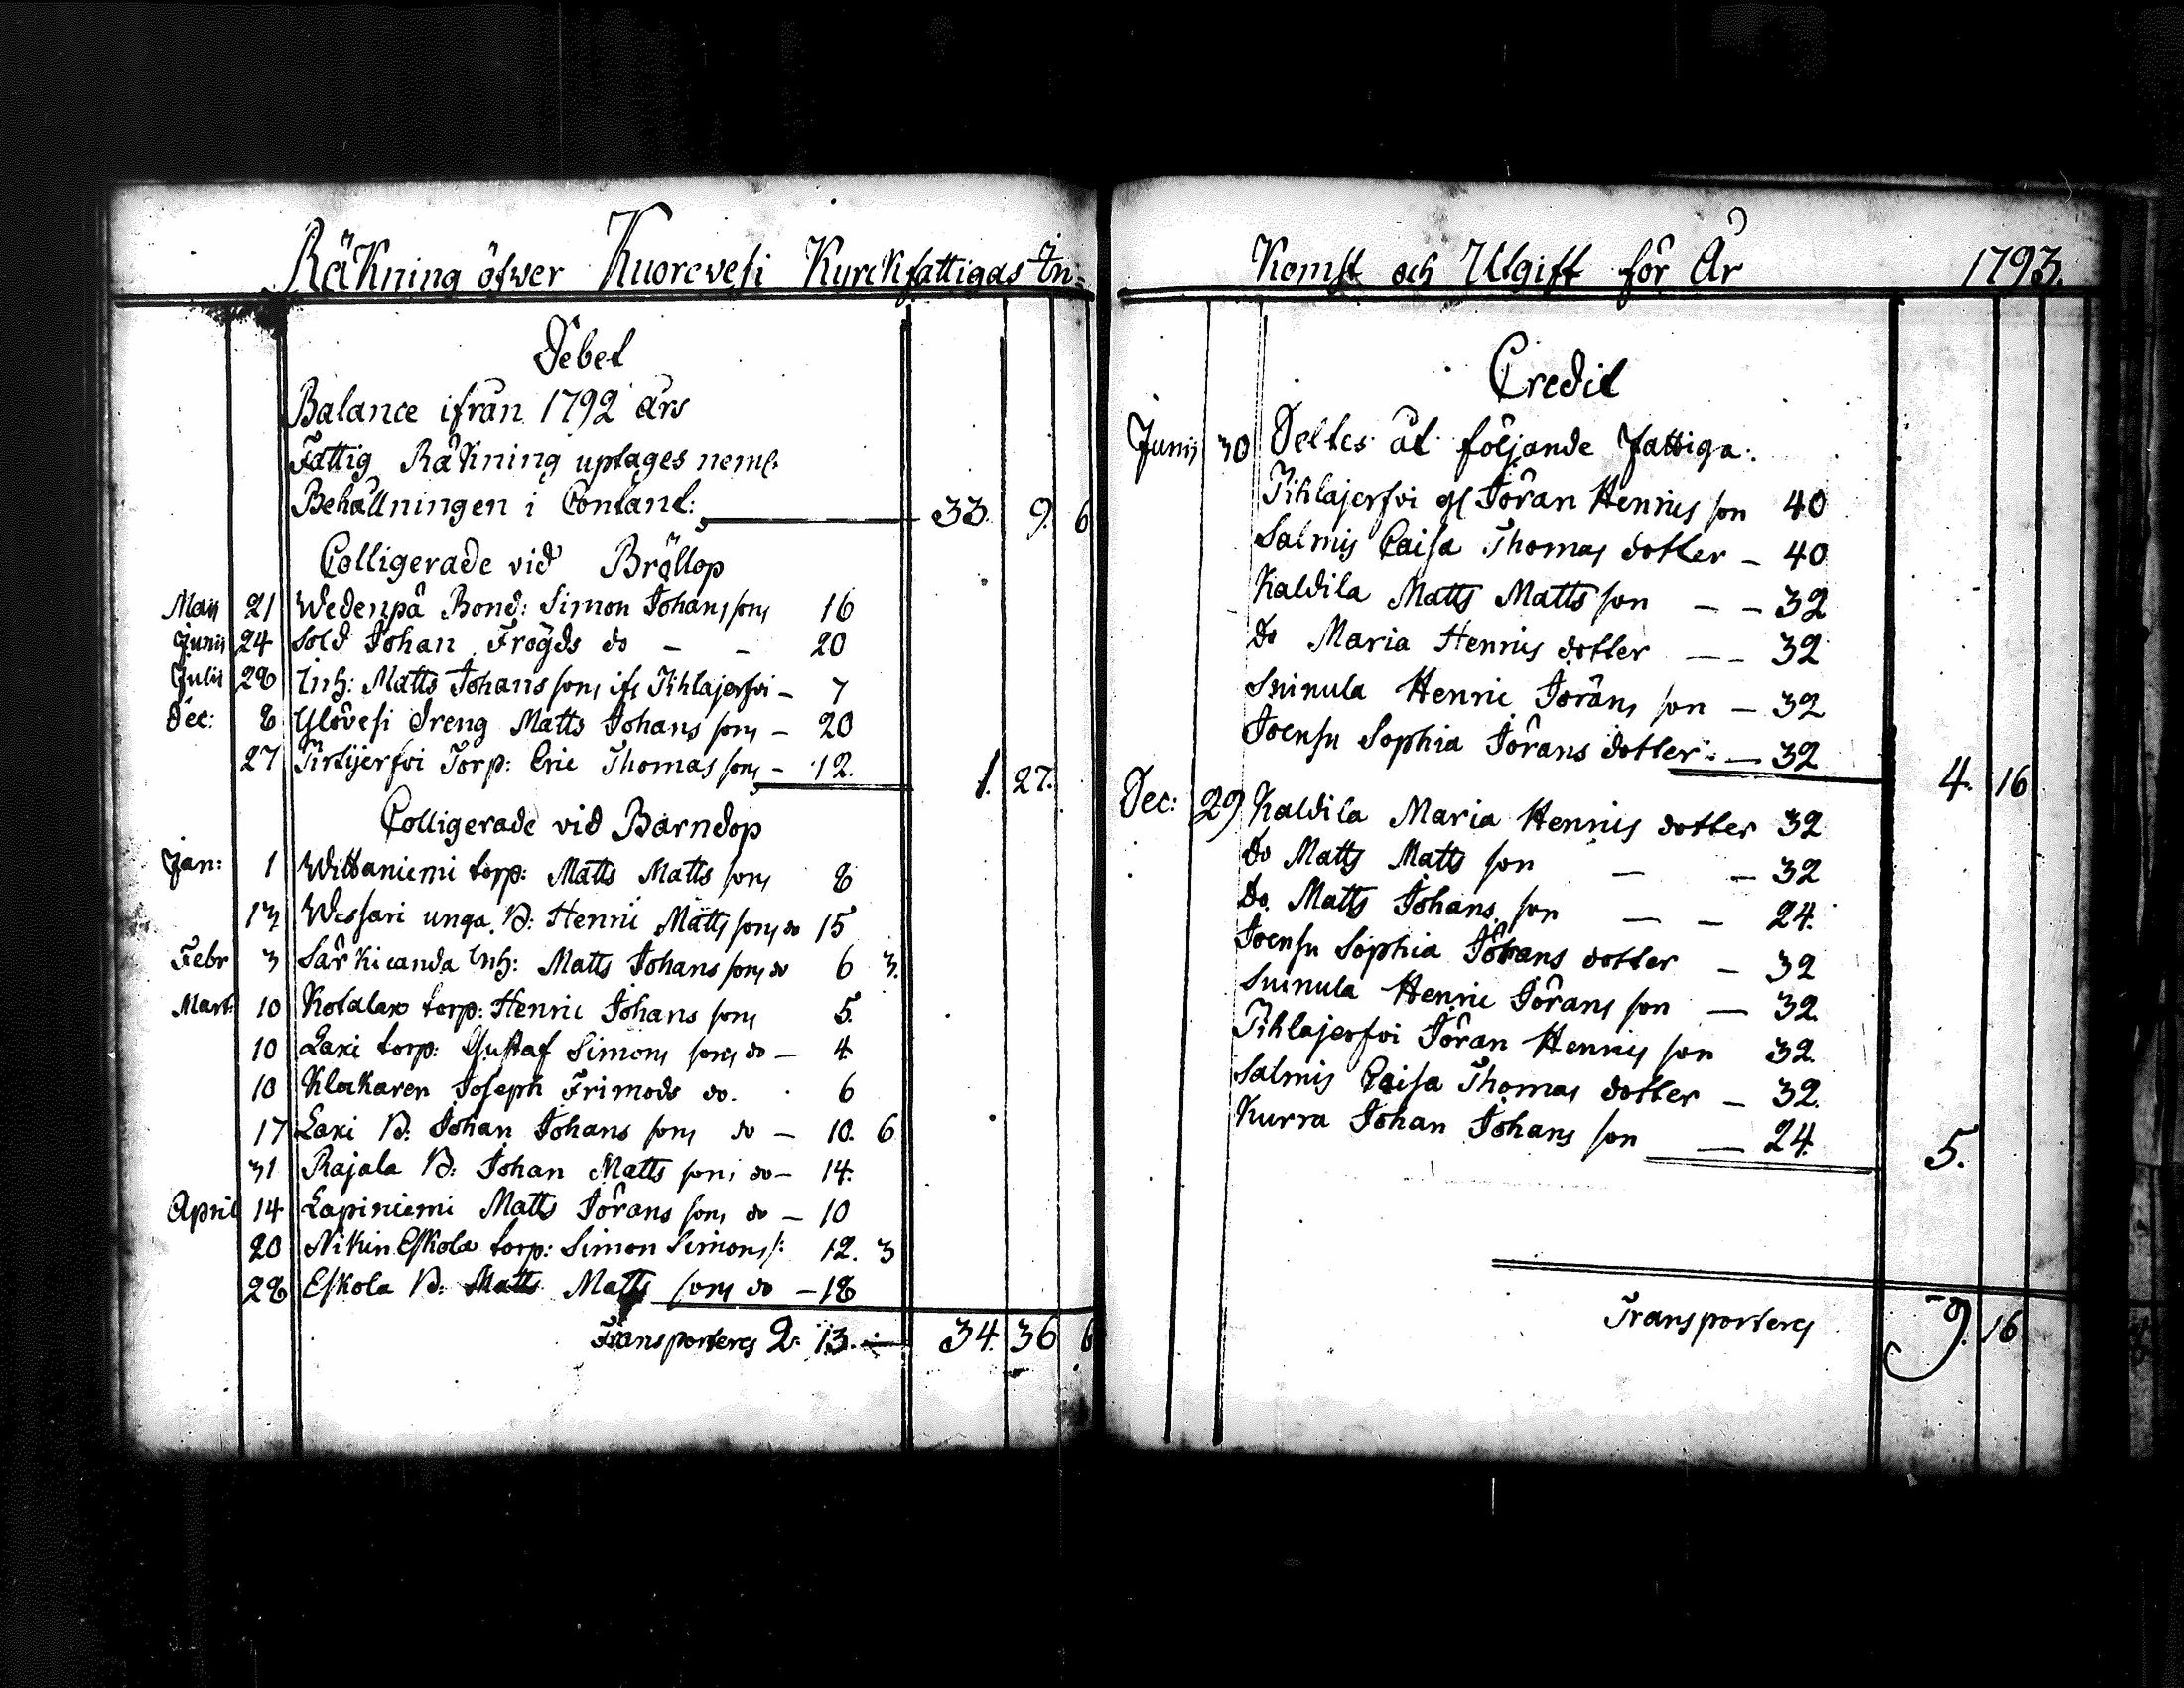 Räkning öfwer Kuorevesi Kyrckfattigas In=
Debet
Balance ifrån 1792 års
Fattig Räkning uptages neml.
Behållningen i Contant: 33. 9. 6
Colligerade vid Bröllop
Maij 21 Wedenpä Bond: Simon Johans sons 16
Junii 24 Sold Johan Frögds do - - 20
Julii 28 Inh: Matts Johans sons ifr Pihlajerfvi - 7
Dec: 8 Ylövesi Dreng Matts Johans sons - 20
27 Pirttijerfvi Torp: Eric Thomas sons - 12. 1. 27.
Colligerade vid Barndop
Jan: 1 Wittaniemi torp: Matts Matts sons 8
13 Wessari unga B: Henric Matts sons do 15
Febr 3 Särkicanda Inh: Matts Johans sons do 6 3.
Mart: 10 Kotalax torp: Henric Johans sons 5.
10 Laxi torp: Gustaf Simons sons do - 4
10 Klockaren Joseph Frimods do. 6
17 Laxi B: Johan Johans sons do - 10. 6
31 Rajala B: Johan Matts sons do - 14.
April 14 Lapiniemi Matts Jörans sons do - 10
20 Nikin Eskola torp: Simon Simons s: 12. 3
28 Eskola B: Matts Matts sons do - 18
Transporteres 2: 13. - 34. 36 6
Komst och Utgift för År 1793.
Credit
Junii 30 Deltes åt följande Fattiga:
Pihlajerfvi gl Jöran Henrics son 40
Salmis Caisa Thomas dotter - 40
Kaldila Matts Matts son - - 32
Do Maria Henrics dotter - - 32
Suinula Henric Jörans son - 32
Joensu Sophia Jörans dotter: - 32 4. 16
Dec: 29 Kaldila Maria Henrics dotter 32
Do Matts Matts son - - 32
Do. Matts Johans son - - 24.
Joensu Sophia Jörans dotter - 32
Suinula Henric Jörans son - 32.
Pihlajerfvi Jöran Henrics son 32.
Salmis Caisa Thomas dotter - 32.
Kurra Johan Johans son - 24. 5.
Transporteres 9. 16